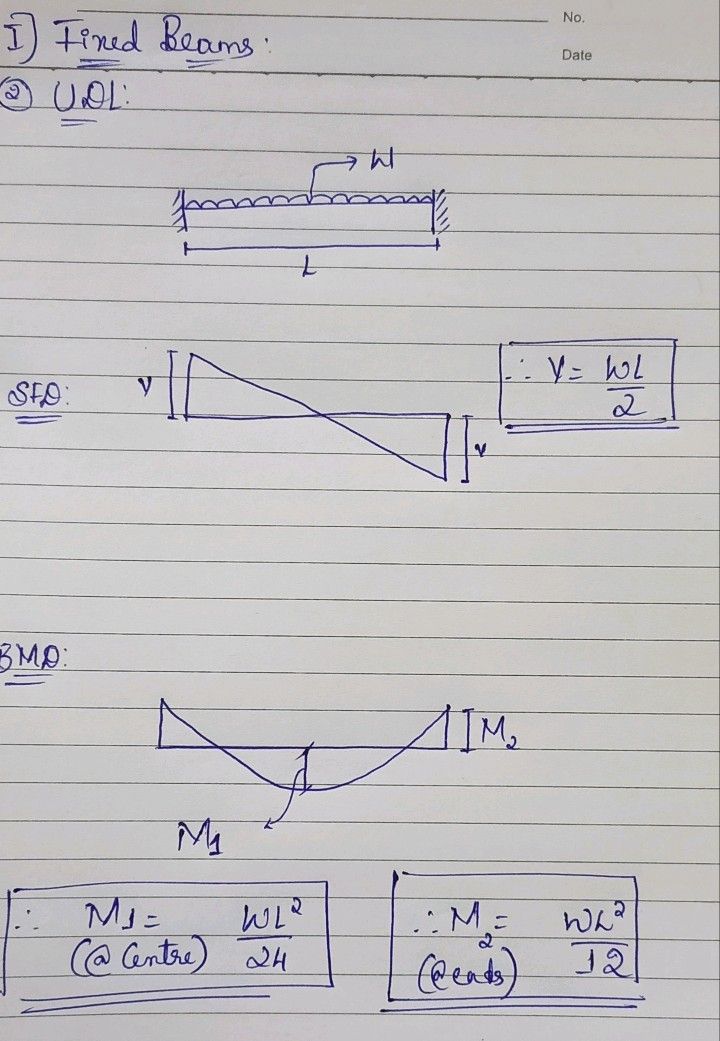 No.
I] Fixed Beams:
Date
② UDL:
W
L
SFD:
V
V
∴ V = WL/2
BMD:
M₂
M1
∴ M1 = WL²/24
(@ Centre)
∴ M₂ = WL²/12
(@ ends)